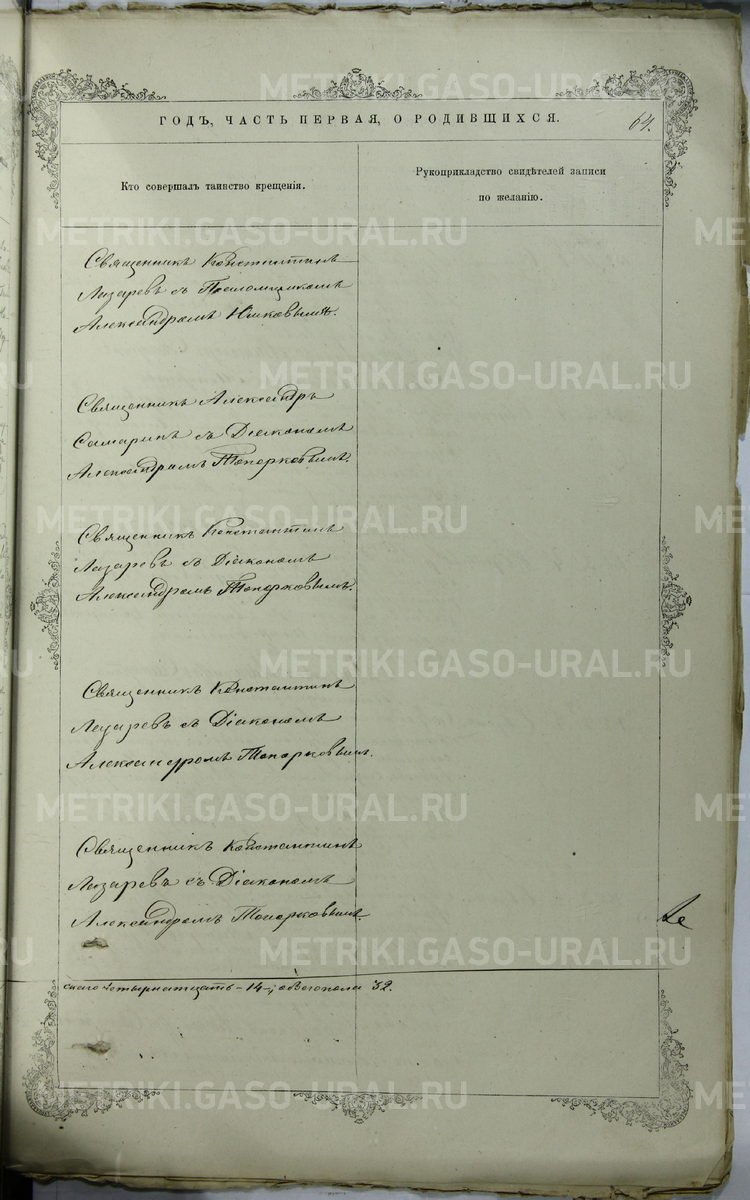 ГОДЪ, ЧАСТЬ ПЕРВАЯ, О РОДИВШИХСЯ.
64.
Кто совершалъ таинство крещенія.
Рукоприкладство свидѣтелей записи
по желанію.
Священникъ Константинъ
Лазаревъ съ Псаломщикомъ
Александромъ
Священникъ Александръ
Самаринъ съ Діакономъ
Александромъ Топорковымъ.
Священникъ Константинъ
Лазаревъ съ Діакономъ
Александромъ Топорковымъ.
Священникъ Константинъ
Лазаревъ съ Діакономъ
Александромъ Топорковымъ.
Священникъ Константинъ
Лазаревъ съ Діакономъ
Александромъ Топорковымъ.
скаго четырнатцать – 14 –, обоего пола 32.
METRIKI.GASO-URAL.RU